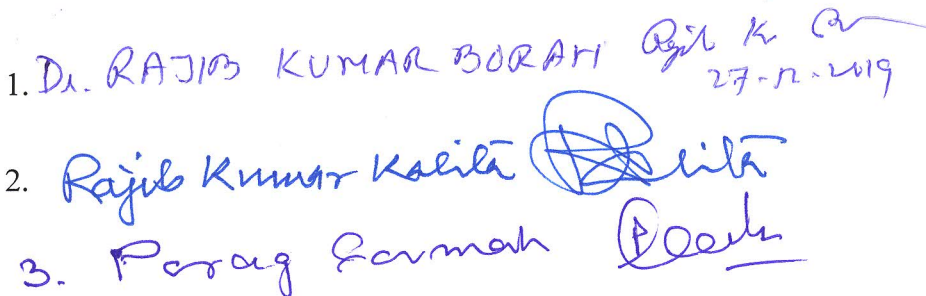 1. Dr. RAJIB KUMAR BORAH Rajib Kr
27-12-2019
2. Rajib Kumar Kalita
3. Parag Sarmah